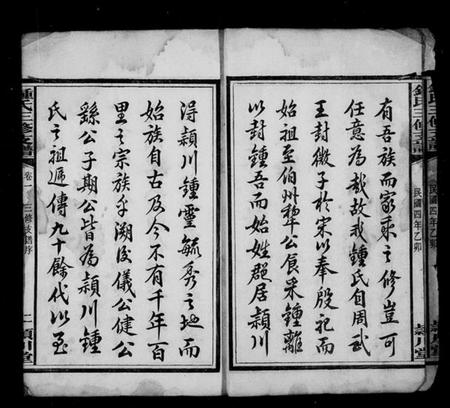 鍾氏三修支譜
民國四年乙卯
潁川堂
有吾族而家乘之修豈可
任意為哉故我鍾氏自周武
王封微子於宋以奉殷祀而
始祖至伯州犂公食采鍾離
以封鍾吾而始姓郡居潁川
得潁川鍾靈毓秀之地而
始族自古及今不有千年百
里之宗族乎溯後儀公健公
繇公子期公皆為潁川鍾
氏之祖遞傳九十餘代以至
鍾氏三修支譜
卷一
三修支譜序
二
潁川堂